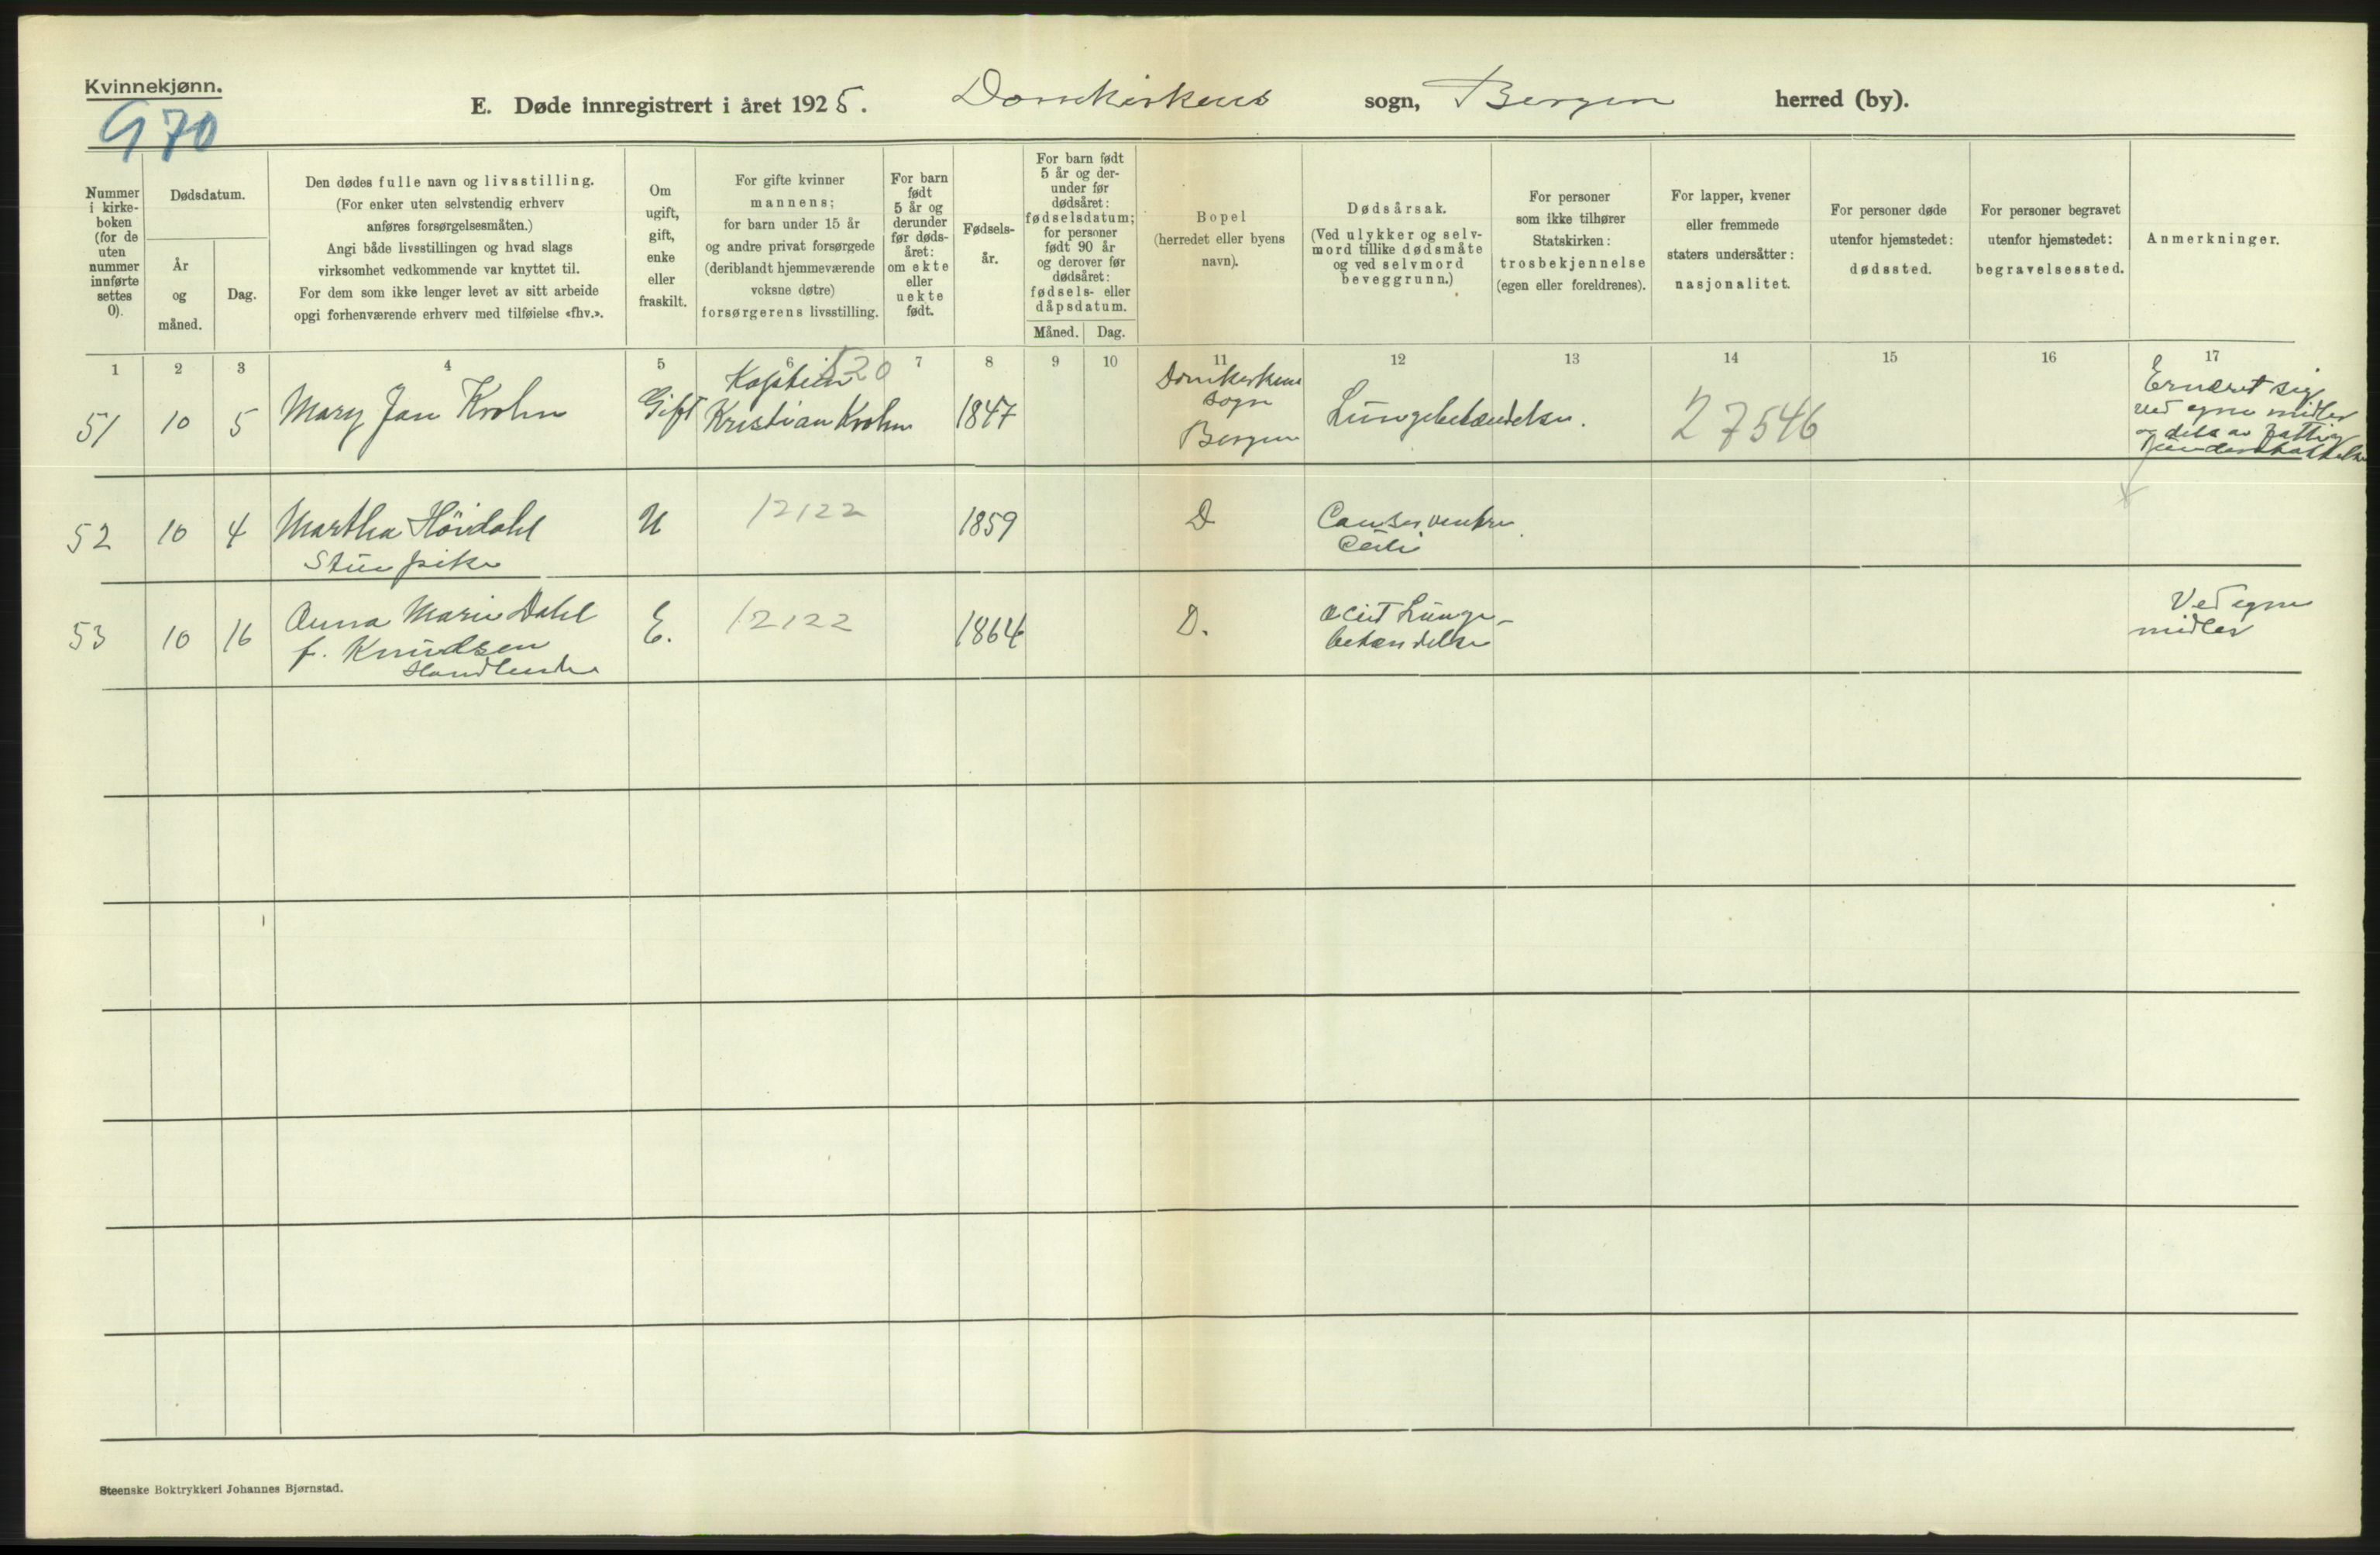 Kvinnekjønn.
970
E. Døde innregistrert i året 1925. Domkirkens sogn, Bergen herred (by).
Nummer i kirke- boken (for de uten nummer innførte settes 0).
Dødsdatum.
År og måned.
Dag.
Den dødes fulle navn og livsstilling.
(For enker uten selvstendig erhverv
anføres forsørgelsesmåten.)
Angi både livsstillingen og hvad slags
virksomhet vedkommende var knyttet til.
For dem som ikke lenger levet av sitt arbeide
opgi forhenværende erhverv med tilføielse «fhv.».
Om ugift, gift, enke eller fraskilt.
For gifte kvinner
mannens;
for barn under 15 år
og andre privat forsørgede
(deriblandt hjemmeværende
voksne døtre)
forsørgerens livsstilling.
For barn født 5 år og derunder før døds- året: om ekte eller uekte født.
Fødsels- år.
For barn født 5 år og der- under før dødsåret: fødselsdatum; for personer født 90 år og derover før dødsåret: fødsels- eller dåpsdatum.
Måned. Dag.
Bopel
(herredet eller byens
navn).
Dødsårsak.
(Ved ulykker og selv-
mord tillike dødsmåte
og ved selvmord
beveggrunn.)
For personer
som ikke tilhører
Statskirken:
trosbekjennelse
(egen eller foreldrenes).
For lapper, kvener
eller fremmede
staters undersåtter:
nasjonalitet.
For personer døde
utenfor hjemstedet:
dødssted.
For personer begravet
utenfor hjemstedet:
begravelsessted.
Anmerkninger.
1 2 3 4 5 6 7 8 9 10 11 12 13 14 15 16 17
51 10 5 Mary Jan Krohn Gift Kaptein 520
Kristian Krohn 1847 Domkirkens
sogn
Bergen Lungebetændelse. 27546 Ernæret sig
ved egne midler
og dels av fattig
understøttelse
52 10 4 Martha Høidahl U 12122 1859 D Cancer ventri
culi
Stuepike
53 10 16 Anna Marie Dahl E. 12122 1864 D. Acut Lunge-
betændelse Ved egne
midler
f. Knudsen
Steenske Boktrykkeri Johannes Bjørnstad.